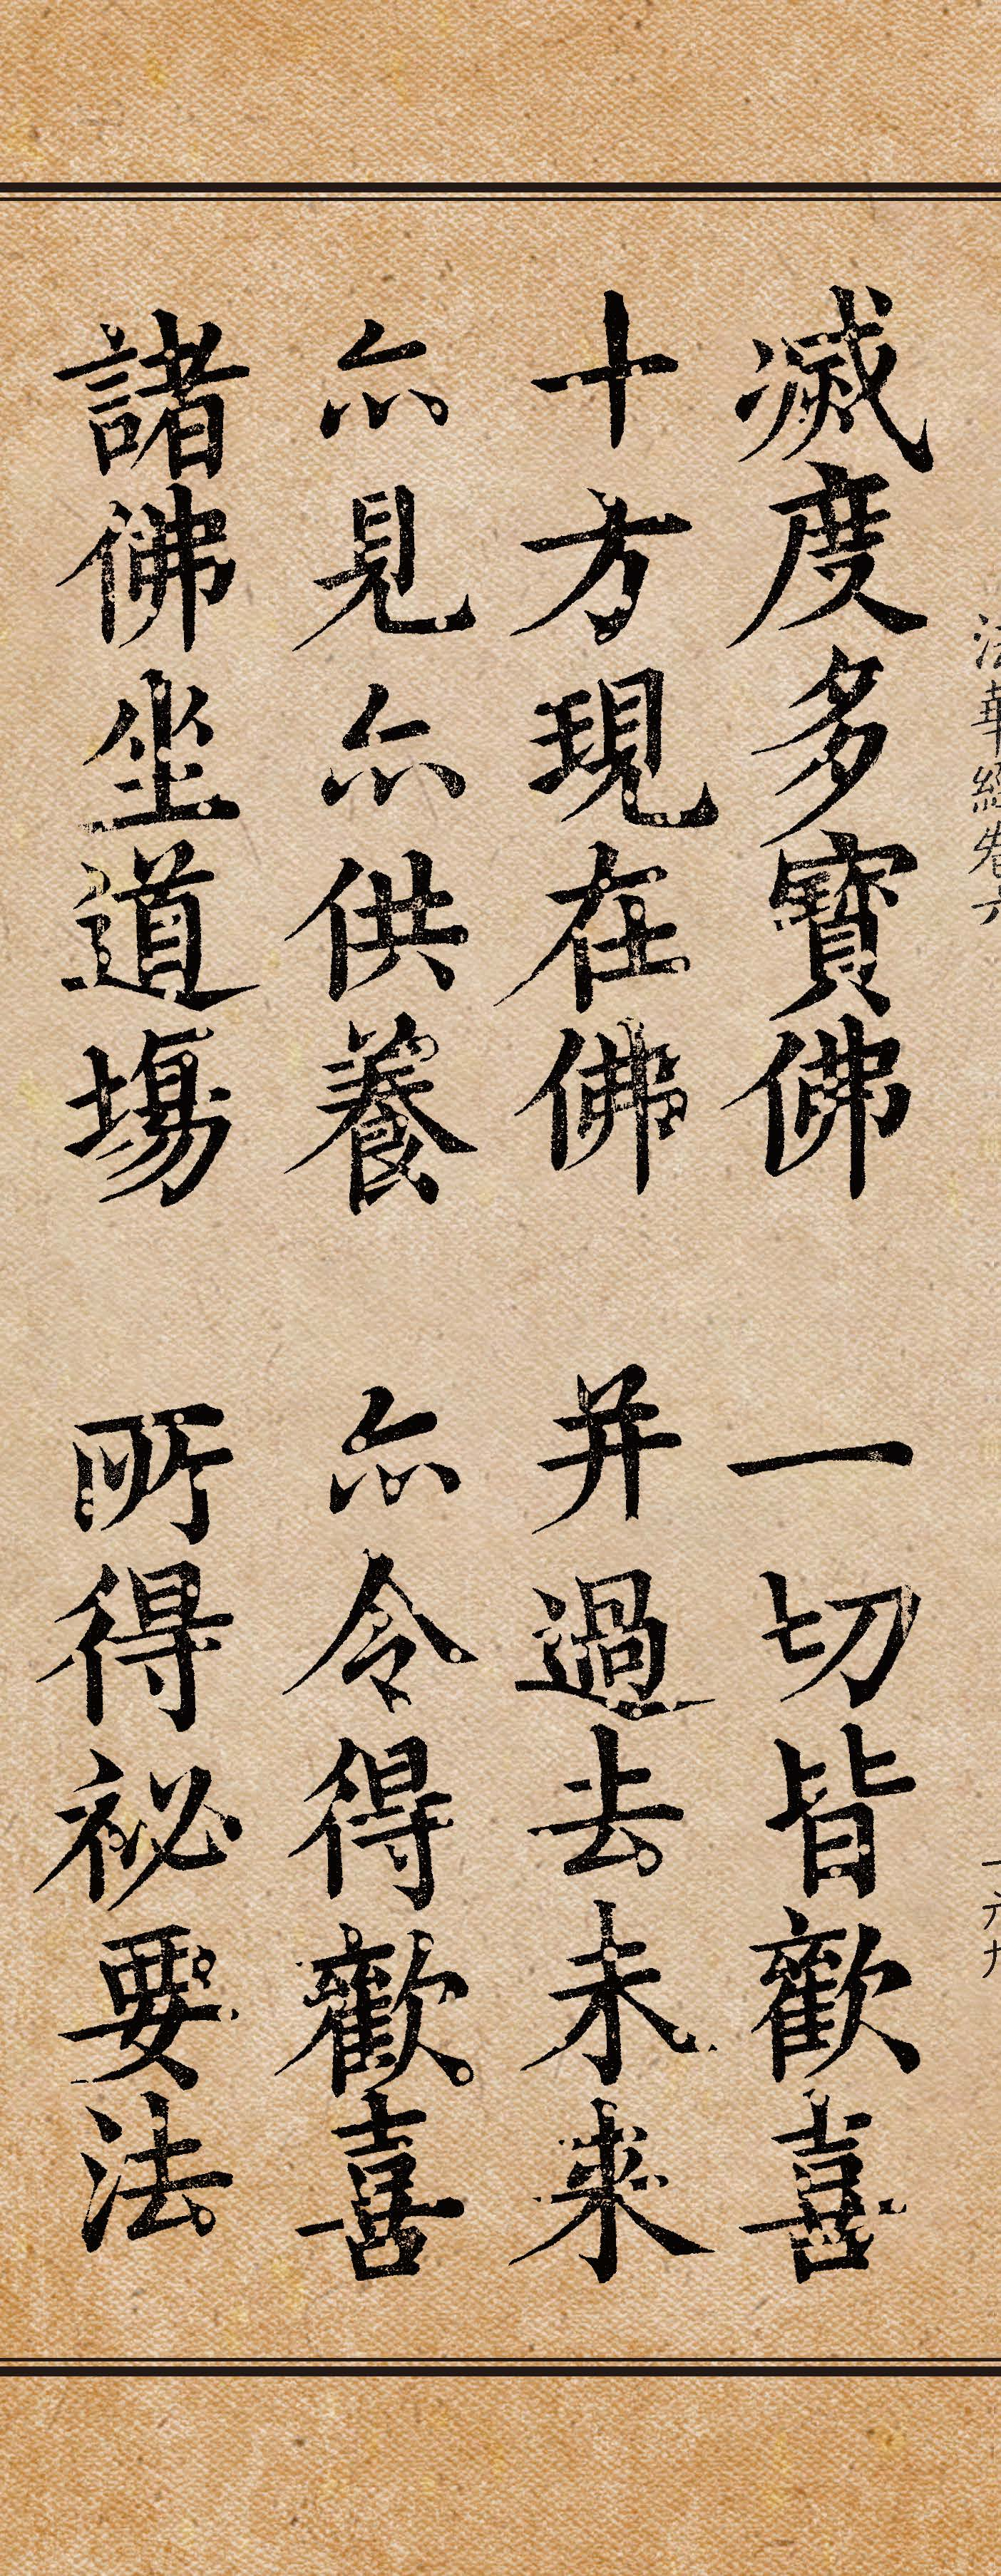 法華經卷六 一六九
滅度多寶佛 一切皆歡喜
十方現在佛 并過去未來
亦見亦供養 亦令得歡喜
諸佛坐道場 所得祕要法